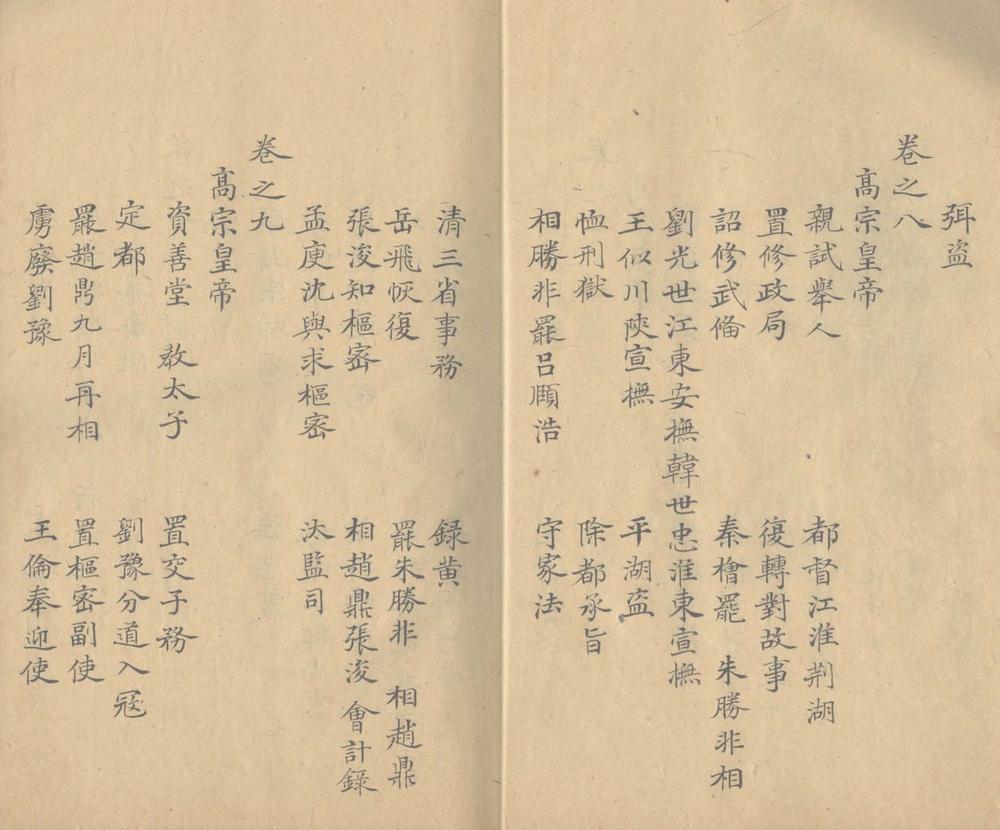 弭盗
卷之八
髙宗皇帝
親試舉人 都督江淮荆湖
置修政局 復轉對故事
詔修武俻 秦檜罷 朱勝非相
劉光世江東安撫韓世忠淮東宣撫
王似川陜宣撫 平湖盗
恤刑獄 除都承旨
相勝非罷吕頤浩 守家法
清三省事務 録黄
岳飛恢復 罷朱勝非 相趙鼎
張浚知樞宻 相趙鼎張浚 會計録
孟庾沈與求樞宻 汰監司
卷之九
髙宗皇帝
資善堂 教太子 置交子務
定都 劉豫分道入冦
罷趙鼎九月再相 置樞密副使
虜廢劉豫 王倫奉迎使